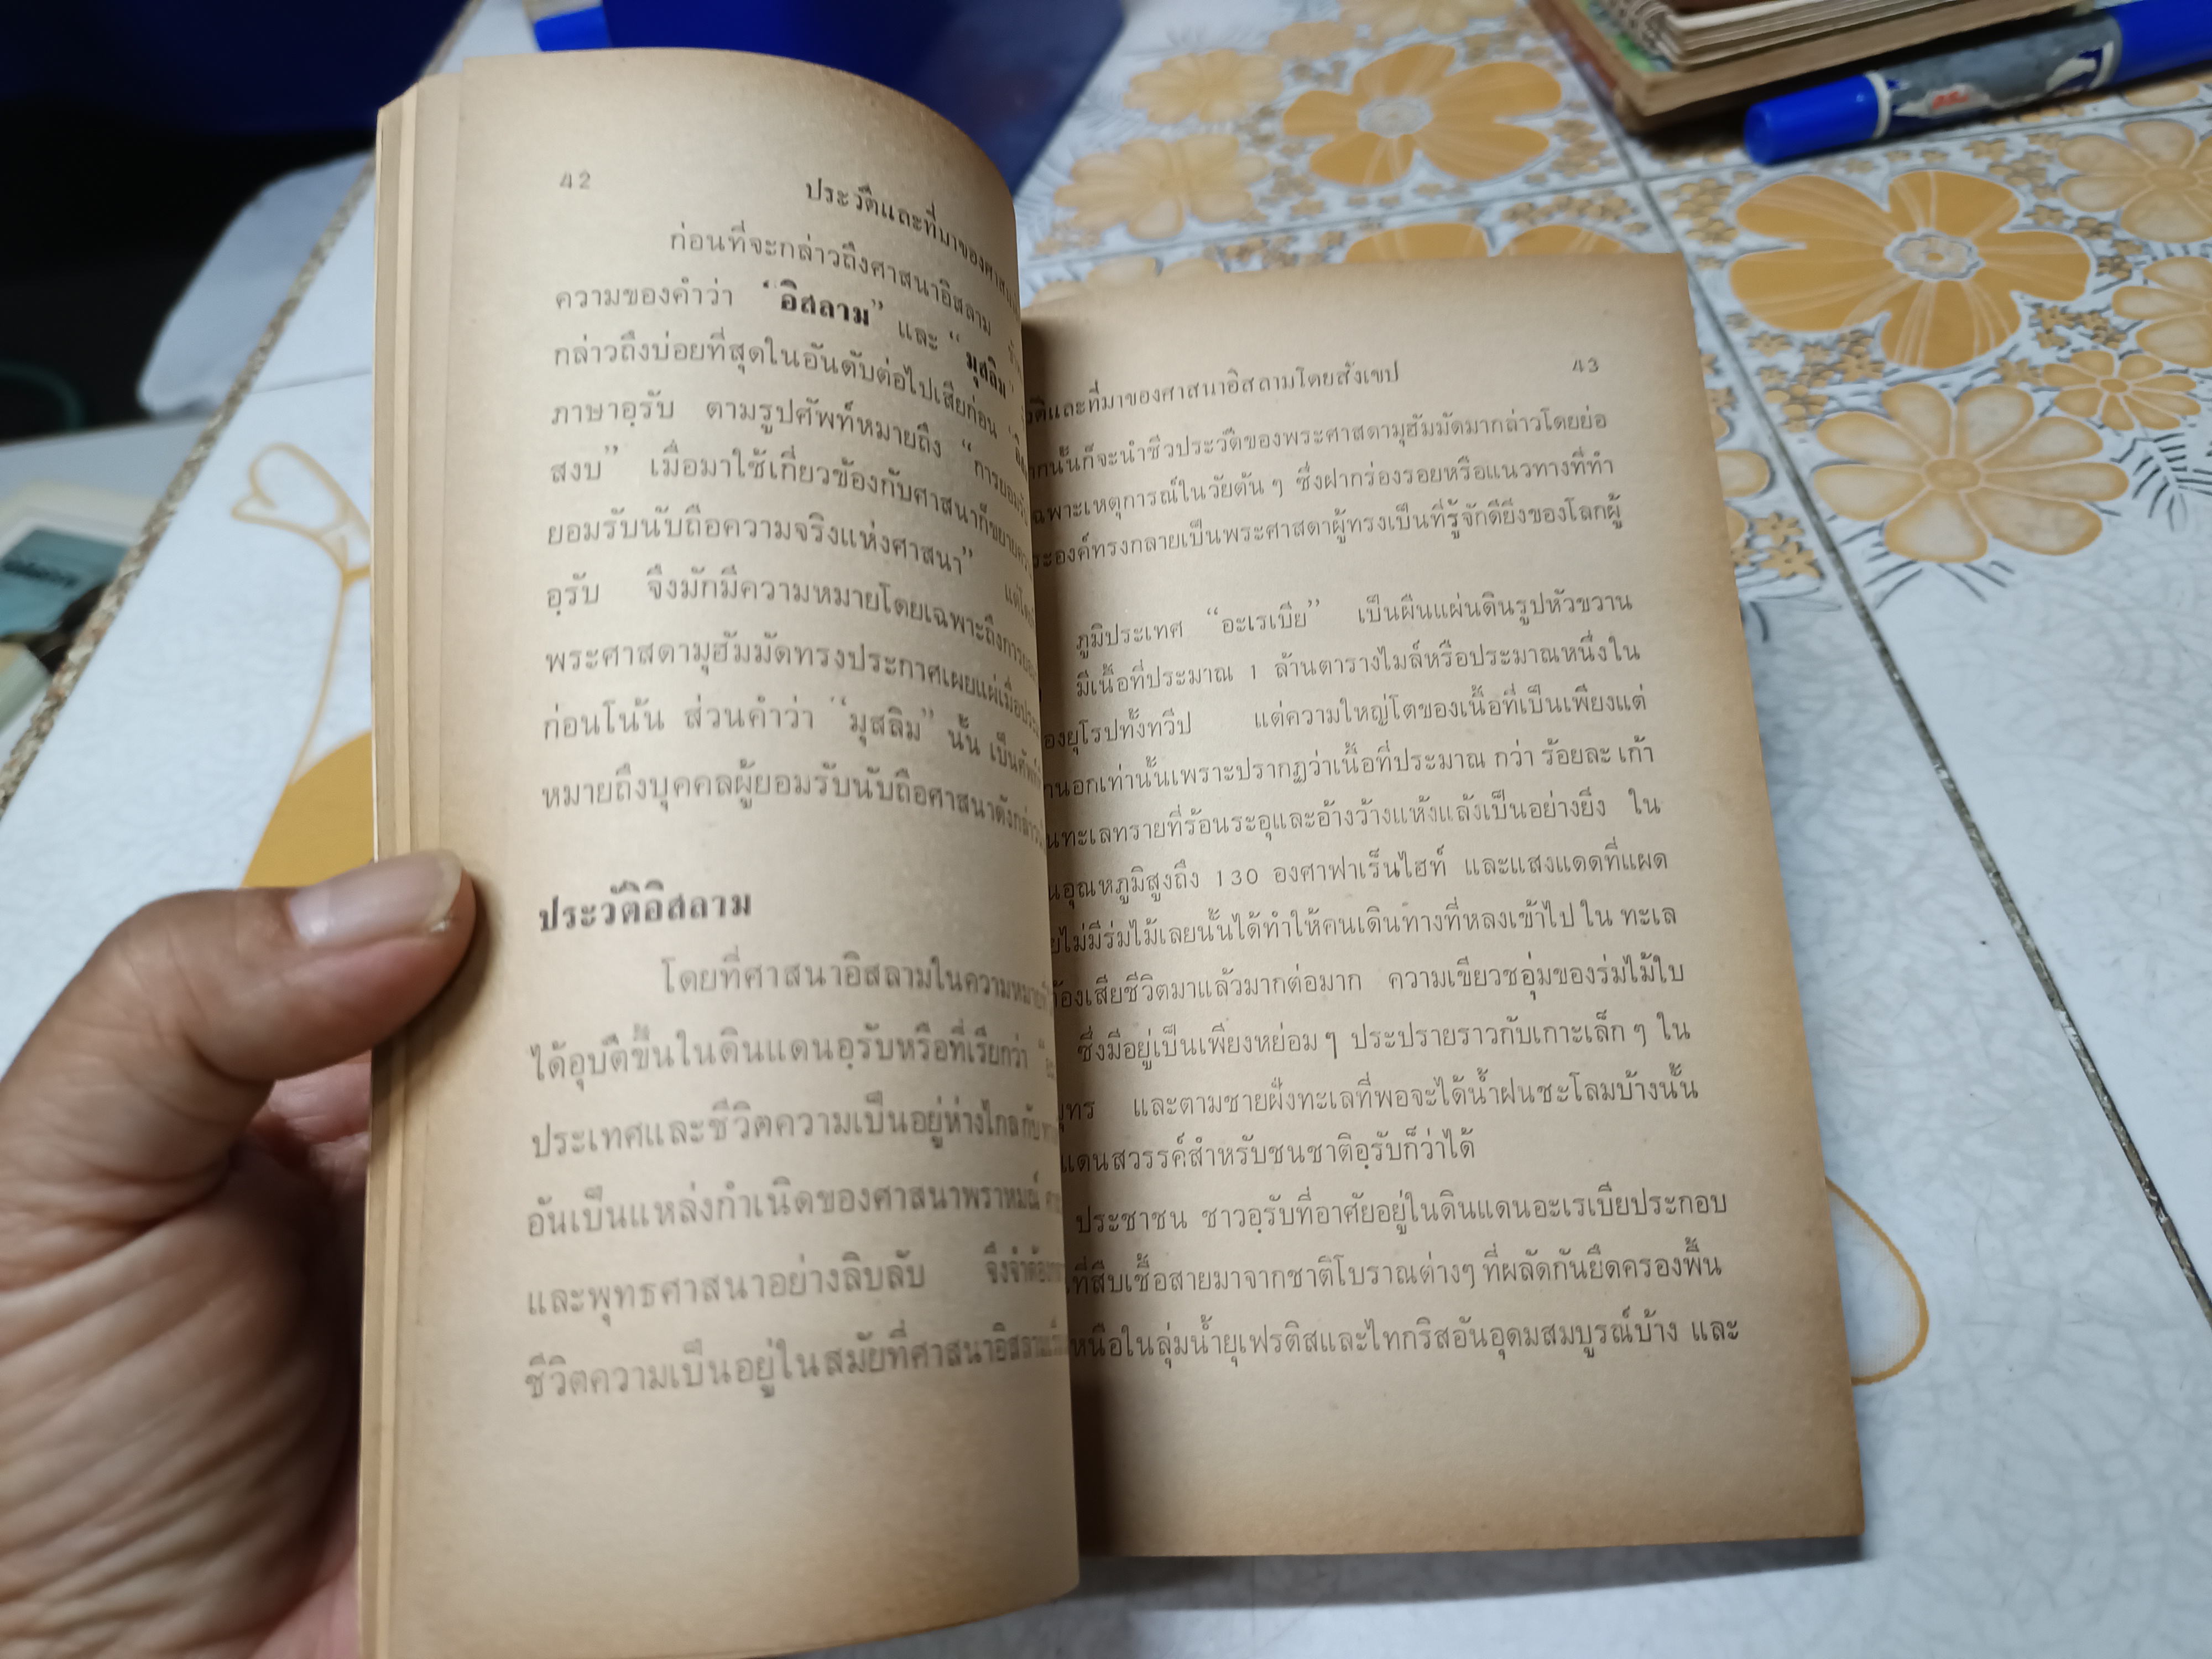 42
ประวัติและที่มาของศาสนา
ก่อนที่จะกล่าวถึงศาสนาอิสลาม
ความของคำว่า "อิสลาม" และ "มุสลิม"
กล่าวถึงบ่อยที่สุดในอันดับต่อไปเสียก่อน
ภาษาอฺรับ ตามรูปศัพท์หมายถึง "การยอมรับ
สงบ" เมื่อมาใช้เกี่ยวข้องกับศาสนาก็ขยายความ
ยอมรับนับถือความจริงแห่งศาสนา" แต่โดย
อฺรับ จึงมักมีความหมายโดยเฉพาะถึงการยอม
พระศาสดามุฮัมมัดทรงประกาศเผยแผ่เมื่อประมาณ
ก่อนโน้น ส่วนคำว่า "มุสลิม" นั้น เป็นศัพท์
หมายถึงบุคคลผู้ยอมรับนับถือศาสนาดังกล่าว
ประวัติอิสลาม
โดยที่ศาสนาอิสลามในความหมาย
ได้อุบัติขึ้นในดินแดนอฺรับหรือที่เรียกว่า
ประเทศและชีวิตความเป็นอยู่ห่างไกลกับ
อันเป็นแหล่งกำเนิดของศาสนาพราหมณ์
และพุทธศาสนาอย่างลิบลับ จึงจำต้อง
ชีวิตความเป็นอยู่ในสมัยที่ศาสนาอิสลาม
วัติและที่มาของศาสนาอิสลามโดยสังเขป
43
ากนั้นก็จะนำชีวประวัติของพระศาสดามุฮัมมัดมากล่าวโดยย่อ
ฉพาะเหตุการณ์ในวัยต้น ๆ ซึ่งฝากร่องรอยหรือแนวทางที่ทำ
ระองค์ทรงกลายเป็นพระศาสดาผู้ทรงเป็นที่รู้จักดียิ่งของโลกผู้
ภูมิประเทศ "อะเรเบีย" เป็นผืนแผ่นดินรูปหัวขวาน
มีเนื้อที่ประมาณ 1 ล้านตารางไมล์หรือประมาณหนึ่งใน
องยุโรปทั้งทวีป แต่ความใหญ่โตของเนื้อที่เป็นเพียงแต่
านอกเท่านั้นเพราะปรากฏว่าเนื้อที่ประมาณ กว่า ร้อยละ เก้า
นทะเลทรายที่ร้อนระอุและอ้างว้างแห้งแล้งเป็นอย่างยิ่ง ใน
นอุณหภูมิสูงถึง 130 องศาฟาเร็นไฮท์ และแสงแดดที่แผด
ยไม่มีร่มไม้เลยนั้นได้ทำให้คนเดินทางที่หลงเข้าไป ใน ทะเล
้องเสียชีวิตมาแล้วมากต่อมาก ความเขียวชอุ่มของร่มไม้ใบ
ซึ่งมีอยู่เป็นเพียงหย่อม ๆ ประปรายราวกับเกาะเล็ก ๆ ใน
มุทร และตามชายฝั่งทะเลที่พอจะได้น้ำฝนชะโลมบ้างนั้น
แดนสวรรค์สำหรับชนชาติอฺรับก็ว่าได้
ประชาชน ชาวอฺรับที่อาศัยอยู่ในดินแดนอะเรเบียประกอบ
ที่สืบเชื้อสายมาจากชาติโบราณต่างๆ ที่ผลัดกันยึดครองพื้น
หนือในลุ่มน้ำยุเฟรติสและไทกริสอันอุดมสมบูรณ์บ้าง และ